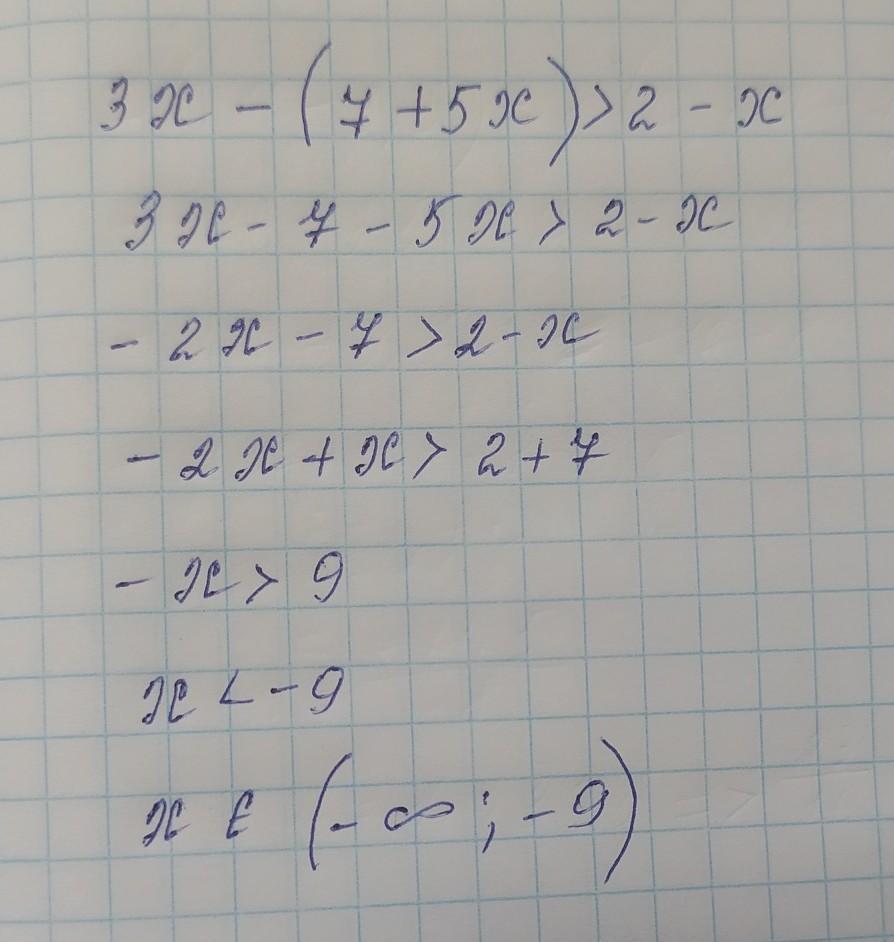 3x - (7 + 5x) > 2 - x
3x - 7 - 5x > 2 - x
- 2x - 7 > 2 - x
- 2x + x > 2 + 7
- x > 9
x < - 9
x ∈ (- ∞ ; - 9)